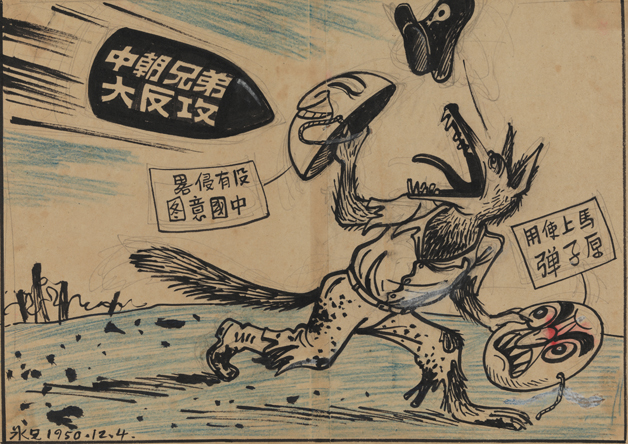 中朝兄弟
大反攻
没有侵畧
中國意图
馬上使用
原子弹
冰兄1950.12.4.